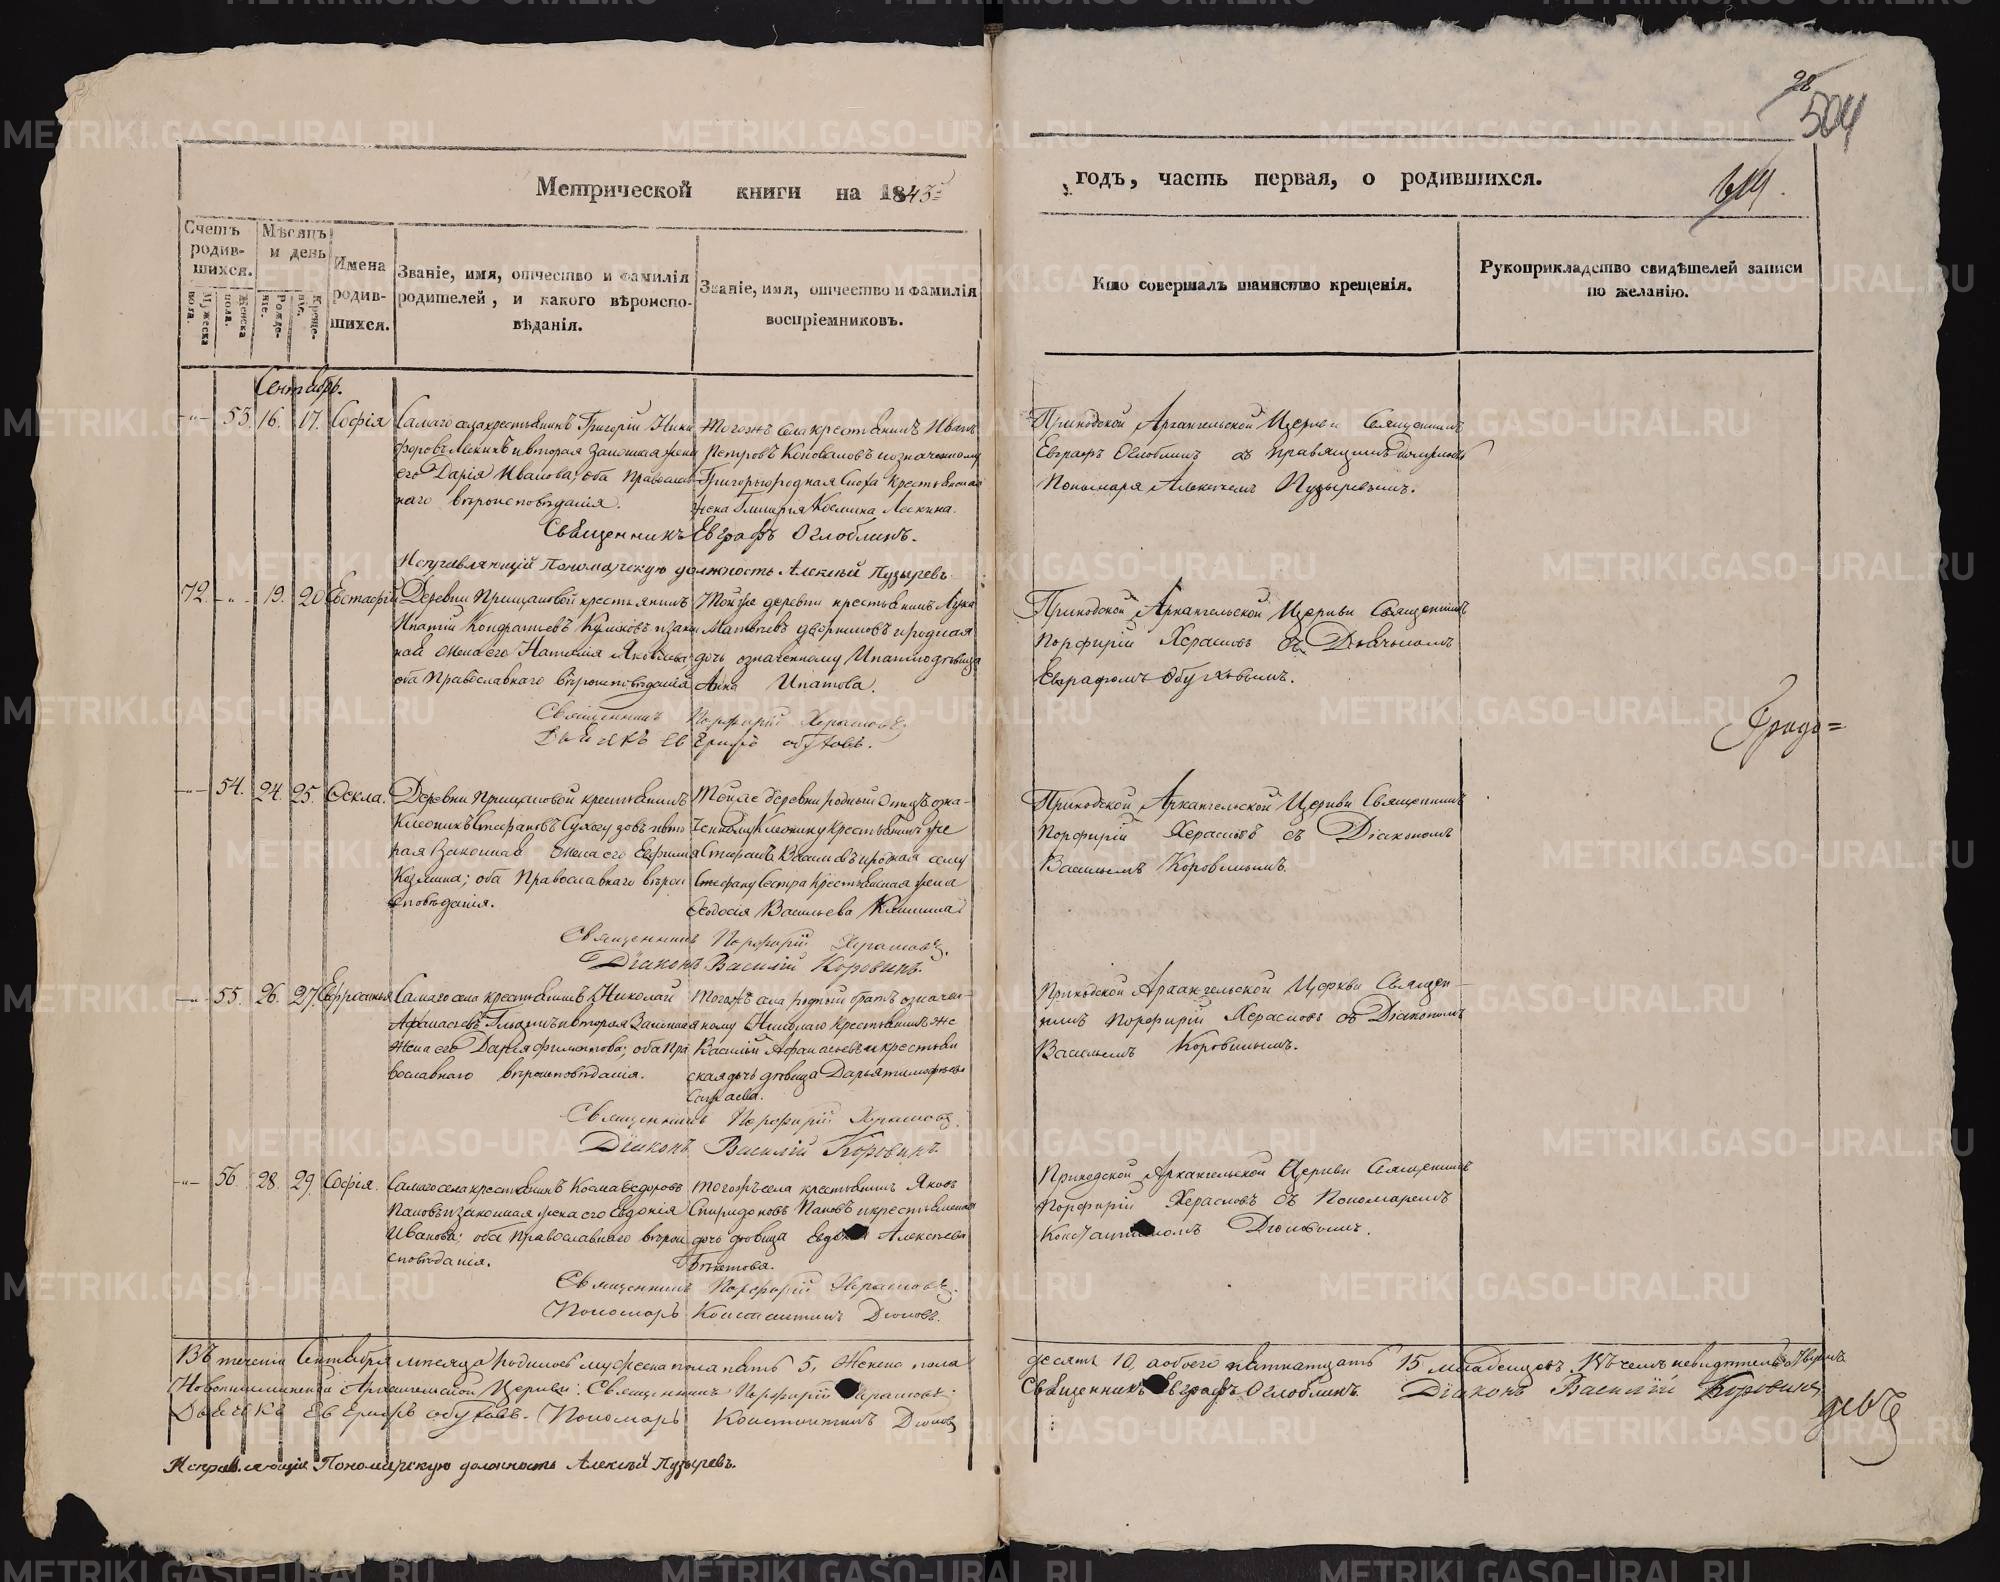 98
504
Метрической книги на 1843 годъ, часть первая, о родившихся.
Счетъ родив-шихся.
Мужеска пола.
Женска пола.
Мѣсяцъ и день
Рожде-ніе.
Креще-ніе.
Имена родив-шихся.
Званіе, имя, отчество и фамилія родителей, и какого вѣроиспо-вѣданія.
Званіе, имя, отчество и фамилія воспріемниковъ.
Кто совершалъ таинство крещенія.
Рукоприкладство свидѣтелей записи по желанію.
Сентябрь.
53. 16. 17. Софія
Самаго села крестьянинъ Григорій Ники
форовъ и вторая законная жена
его Дарія Иванова; оба Православ
наго вѣроисповѣданія.
Тогожъ села крестьянинъ Иванъ
Петровъ Коноваловъ и означенному
Григорью родная сноха крестьянская
жена Гликерія Космина Лескина.
Приходской Архангельской Церкви Священникъ
Евграфъ Оглоблинъ съ правящимъ должность
Пономаря Алексѣемъ Пузыревымъ.
Священникъ Евграфъ Оглоблинъ.
Исправляющій Пономарскую должность Алексѣй Пузыревъ.
72. 19. 20 Евстафій
Деревни Прищановой крестьянинъ
Ипатій Кондратьевъ Куликовъ и закон
ная жена его Наталія Яковлева
оба Православнаго вѣроисповѣданія
Той же деревни крестьянинъ Лука
Матвѣевъ Дворниковъ и родная
дочь означенному Ипатію дѣвица
Анна Ипатова.
Приходской Архангельской Церкви Священникъ
Порфирій Херасковъ съ Дьячкомъ
Евграфомъ Обутовымъ.
Священникъ Порфирій Херасковъ
Дьячекъ Евграфъ Обутовъ.
Градо=
54. 24. 25. Ѳекла.
Деревни Прищановой крестьянинъ
Стефановъ и вто
рая законная жена его Евфимія
Козмина; оба Православнаго вѣрои
сповѣданія.
Тойже деревни родный отецъ озна-
ченному крестьянинъ же
Стефанъ Васильевъ и родная сему
Стефану сестра крестьянская жена
Ѳеодосія Васильева
Приходской Архангельской Церкви Священникъ
Порфирій Херасковъ съ Діакономъ
Васильемъ Коровинымъ.
Священникъ Порфирій Херасковъ.
Діаконъ Василій Коровинъ.
55. 26. 27. Евфросинья
Самаго села крестьянинъ Николай
Афанасьевъ и вторая законная
жена его Дарія Филиппова; оба Пра
вославнаго вѣроисповѣданія.
Тогожъ села родный братъ означен-
ному Николаю крестьянинъ же
Василій Афанасьевъ и крестьян
ская дочь дѣвица Дарья Тимофѣева
Приходской Архангельской Церкви Священ-
никъ Порфирій Херасковъ съ Діакономъ
Васильемъ Коровинымъ.
Священникъ Порфирій Херасковъ.
Діаконъ Василій Коровинъ.
56. 28. 29. Софія.
Самаго села крестьянинъ Косма Ѳедоровъ
Пановъ и законная жена его Евдокія
Иванова; оба Православнаго вѣрои
сповѣданія.
Тогожъ села крестьянинъ Яковъ
Спиридоновъ Пановъ и крестьянская
дочь дѣвица Евдокія Алексѣева
Бѣкетова.
Приходской Архангельской Церкви Священникъ
Порфирій Херасковъ съ Пономаремъ
Константиномъ Дюковымъ.
Священникъ Порфирій Херасковъ.
Пономарь Константинъ Дюковъ.
Въ теченіи Сентября мѣсяца родилось мужеска пола пять 5, Женска пола десять 10, а обоего пятнатцать 15 младенцовъ. Въ чемъ
Архангельской Церкви: Священникъ Порфирій Херасковъ. Священникъ Евграфъ Оглоблинъ Діаконъ Василій Коровинъ
Дьячекъ Евграфъ Обутовъ. Пономарь Константинъ Дюковъ
Исправляющій Пономарскую должность Алексѣй Пузыревъ.
METRIKI.GASO-URAL.RU